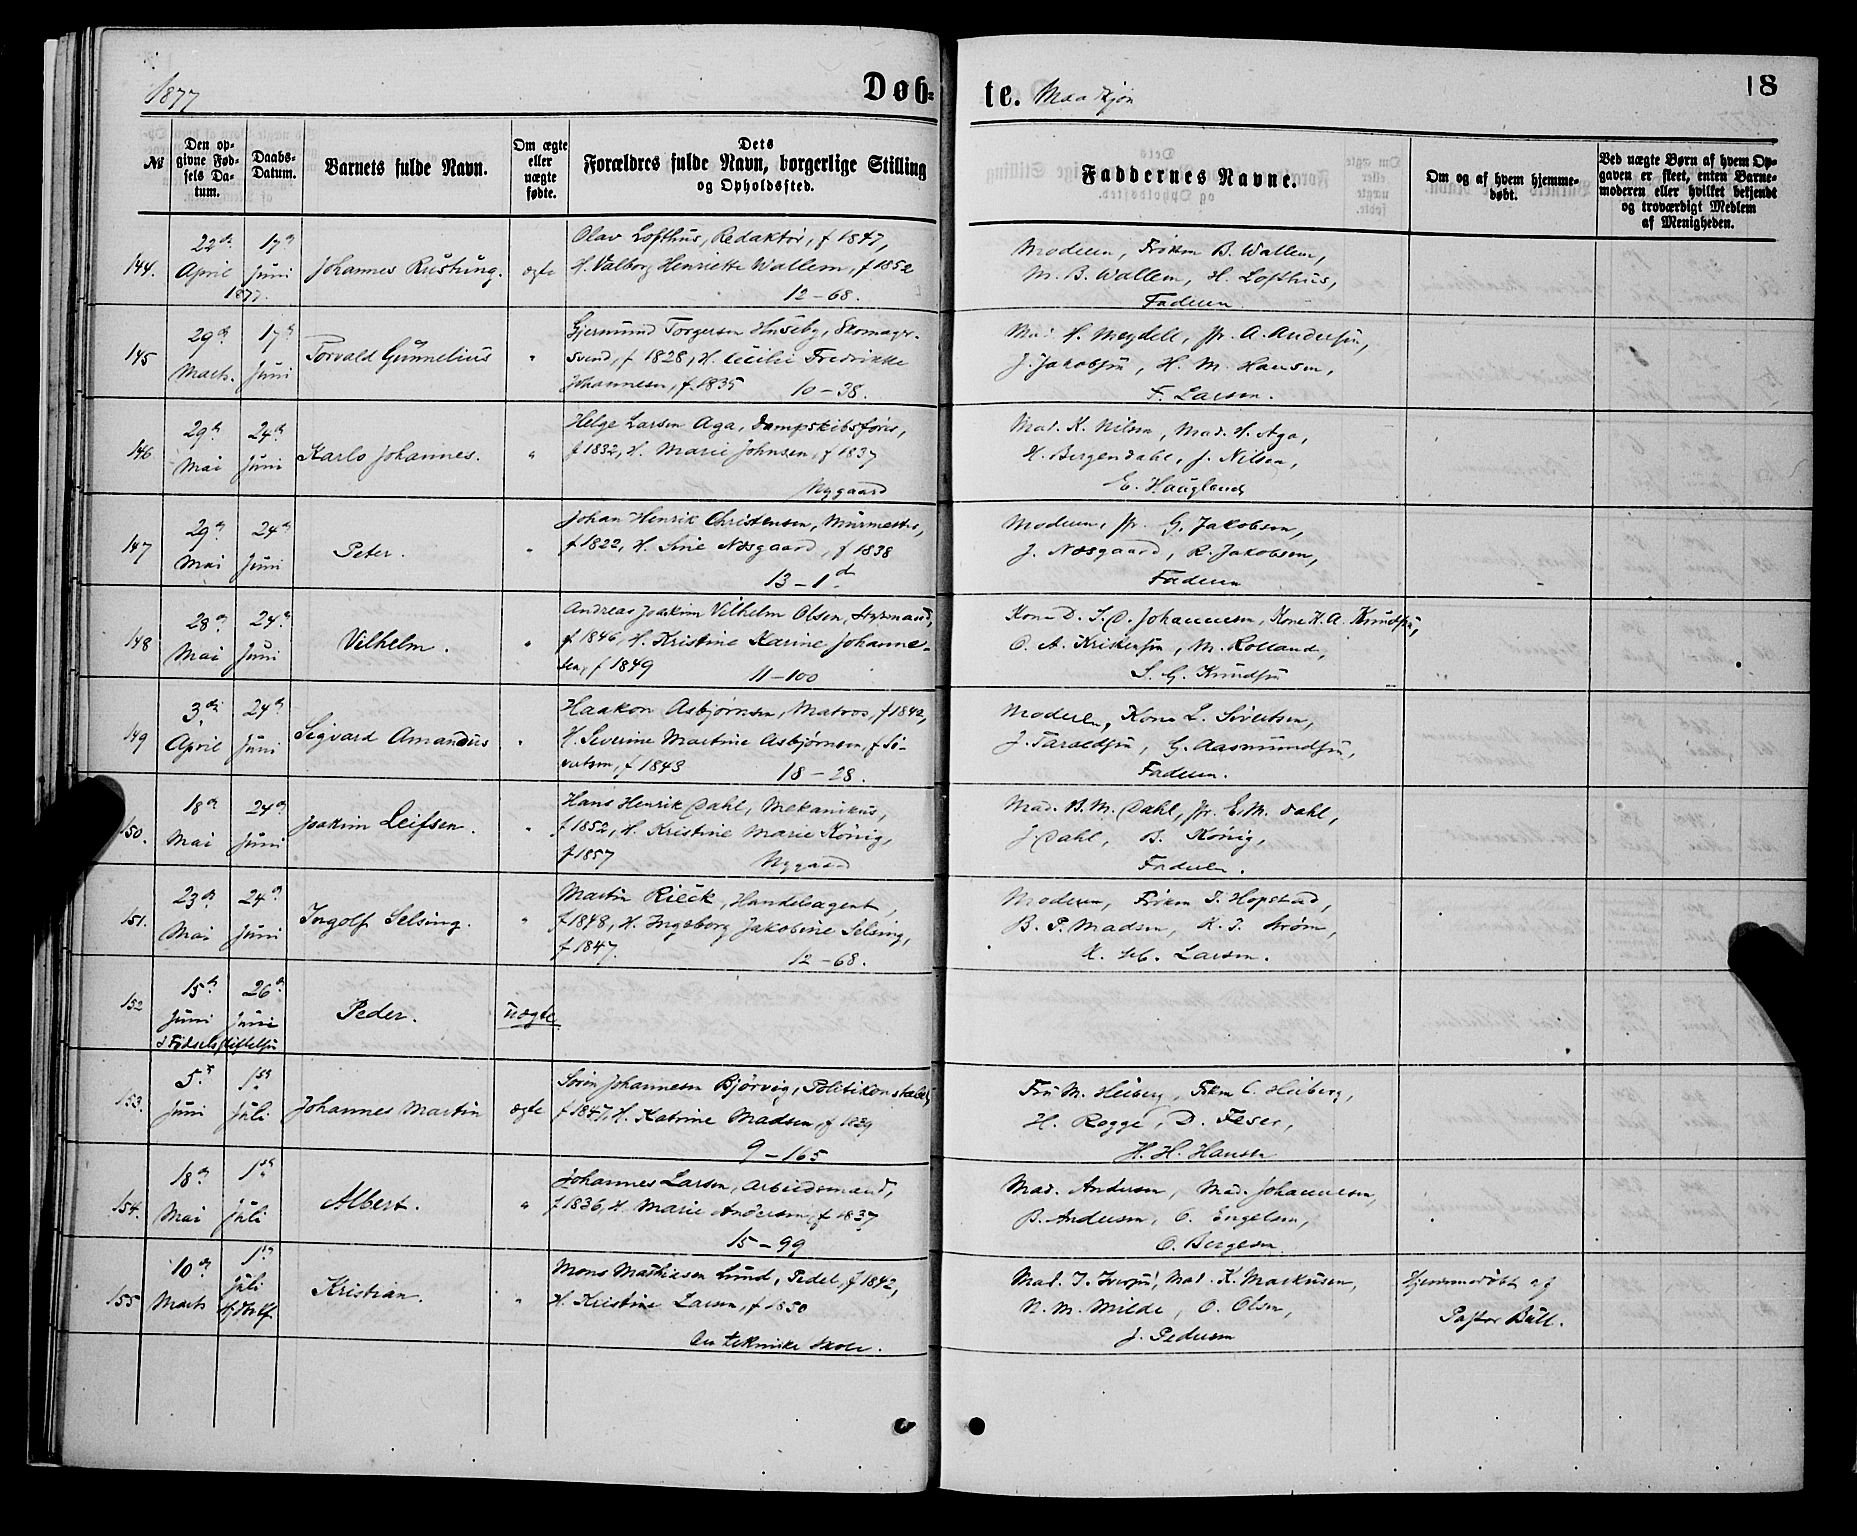 1877
Døb-
te. Mandkjøn
18
№
Den op-
givne Fød-
sels Da-
tum.
Daabs-
Datum.
Barnets fulde Navn.
Om ægte
eller
uægte
fødte.
Dets
Forældres fulde Navn, borgerlige Stilling
og Opholdssted.
Faddernes Navne.
Om og af hvem hjemme-
døbt.
Ved uægte Børn af hvem Op-
gaven er skeet, enten Barne-
moderen eller hvilket bekjendt
og troværdigt Medlem
af Menigheden.
144. 22de April 1877. 17de Juni Johannes Rustung. ægte
Olav Lofthus, Redaktør, f 1847,
H. Valborg Henriette Wallem, f 1852
12-68.
Moderen, Frøken B. Wallem,
M. B. Wallem, H. Lofthus,
Faderen
145 29de Marts. 17de Juni Torvald Gunnelius "
Gjermund Torgersen Huseby, Skomager-
svend, f 1828, H. Cecilie Fredrikke
Johannesen, f. 1835 10-38.
Mad. H. Meydell, Jfr. A. Andersen,
J. Jakobsen, H. M. Hansen,
F. Larsen.
146 29de Mai 24de Juni Karlo Johannes. "
Helge Larsen Aga, Dampskibsfører,
f 1832, H. Marie Johnsen, f 1837
Nygaard
Mad. K. Nilsen, Mad. H. Aga,
H. Bergendahl, J. Nilsen,
E. Haugland
147 29de Mai 24de Juni Peter. "
Johan Henrik Christensen, Murmester,
f 1822, H. Sine Næsgaard, f 1838
13-1d
Moderen, Jfr. G. Jakobsen,
J. Næsgaard, R. Jakobsen,
Faderen
148 28de Mai 24de Juni Vilhelm. "
Andreas Joakim Vilhelm Olsen, Styrmand,
f 1846, H. Kristine Karine Johanne-
sen, f 1849 11-100
Kone D. S. D. Johannesen, Kone K. A. Knudsen,
O. A. Kristensen, M. Rolland,
S. G. Knudsen
149 3die April 24de Juni Sigvard Amandus "
Haakon Asbjørnsen, Matros, f 1842,
H. Severine Martine Asbjørnsen, f Si-
vertsen, f 1843 18-28.
Moderen, Kone L. Sivertsen,
J. Taraldsen, G. Aasmundsen,
Faderen.
150. 18de Mai 24de Juni Joakim Leifsen. "
Hans Henrik Dahl, Mekanikus,
f 1852, H. Kristine Marie König,
f 1857 Nygaard
Mad. B. M. Dahl, Jfr. E. M. Dahl,
J. Dahl, B. König,
Faderen.
151. 23de Mai 24de Juni Ingolf Selsing. "
Martin Rieck, Handelsagent,
f 1848, H. Ingeborg Jakobine Selsing,
f 1847. 12-68.
Moderen, Frøken I. Hopstad,
B. P. Madsen, K. I. Strøm,
K. Larsen.
152 15de Juni 26de Juni Peder. uægte
d Fødselsstiftelsen
153. 5te Juni 1ste Juli. Johannes Martin ægte
Sørin Johannesen Bjørvig, Politikonstabel,
f 1847, H. Katrine Madsen, f 1839
9-165
Fru M. Heiberg, Frkn C. Heiberg,
H. Rogge, D. Feser,
H. H. Hansen
154. 18de Mai 1ste Juli Albert. "
Johannes Larsen, Arbeidsmand,
f 1836, H. Marie Andersen, f 1837
15-99
Mad. Andersen, Mad. Johannesen,
B. Andersen, O. Engelsen,
O. Bergesen
155 10de Marts 1ste Juli Kristian. "
Mons Mathiesen Lund, Pedel, f 1842,
H. Kristine Larsen, f 1850
den tekniske Skole.
Mad. I. Iversen, Mad. K. Markusen,
N. M. Milde, O. Olsen,
J. Pedersen
Hjemmedøbt af
Pastor Bull.